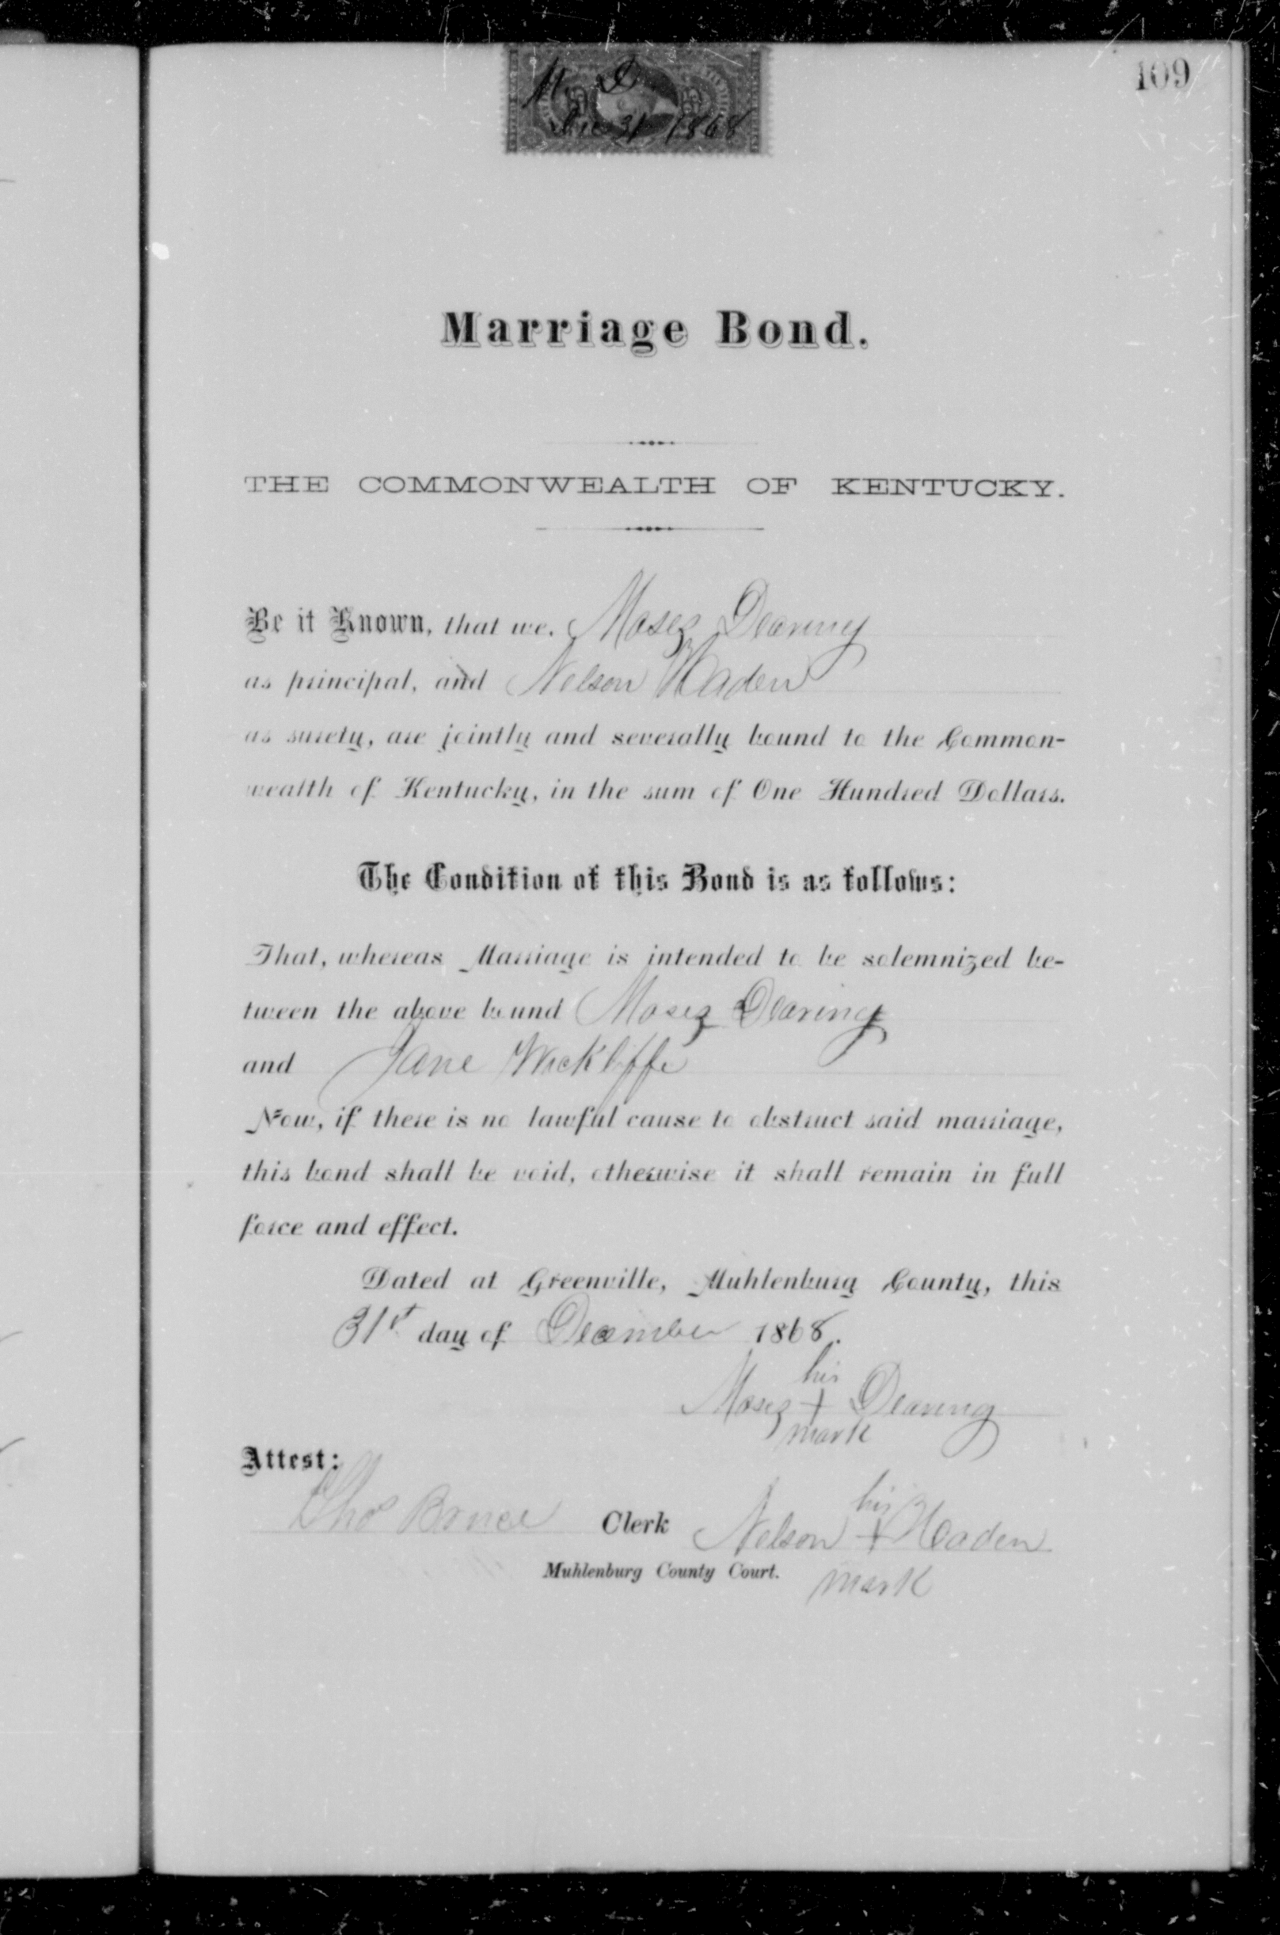 109
M. D
Dec 31 1868
Marriage Bond.
THE COMMONWEALTH OF KENTUCKY.
Be it Known, that we, Moses Dearing
as principal, and Nelson Haden
as surety, are jointly and severally bound to the Common-
wealth of Kentucky, in the sum of One Hundred Dollars.
The Condition of this Bond is as follows:
That, whereas Marriage is intended to be solemnized be-
tween the above bound Moses Dearing
and Jane Wickliffe
Now, if there is no lawful cause to obstruct said marriage,
this bond shall be void, otherwise it shall remain in full
force and effect.
Dated at Greenville, Muhlenburg County, this
31st day of December 1868.
his
Moses + Dearing
mark
Attest:
his
Tho Bruce Clerk Nelson + Haden
Muhlenburg County Court. mark